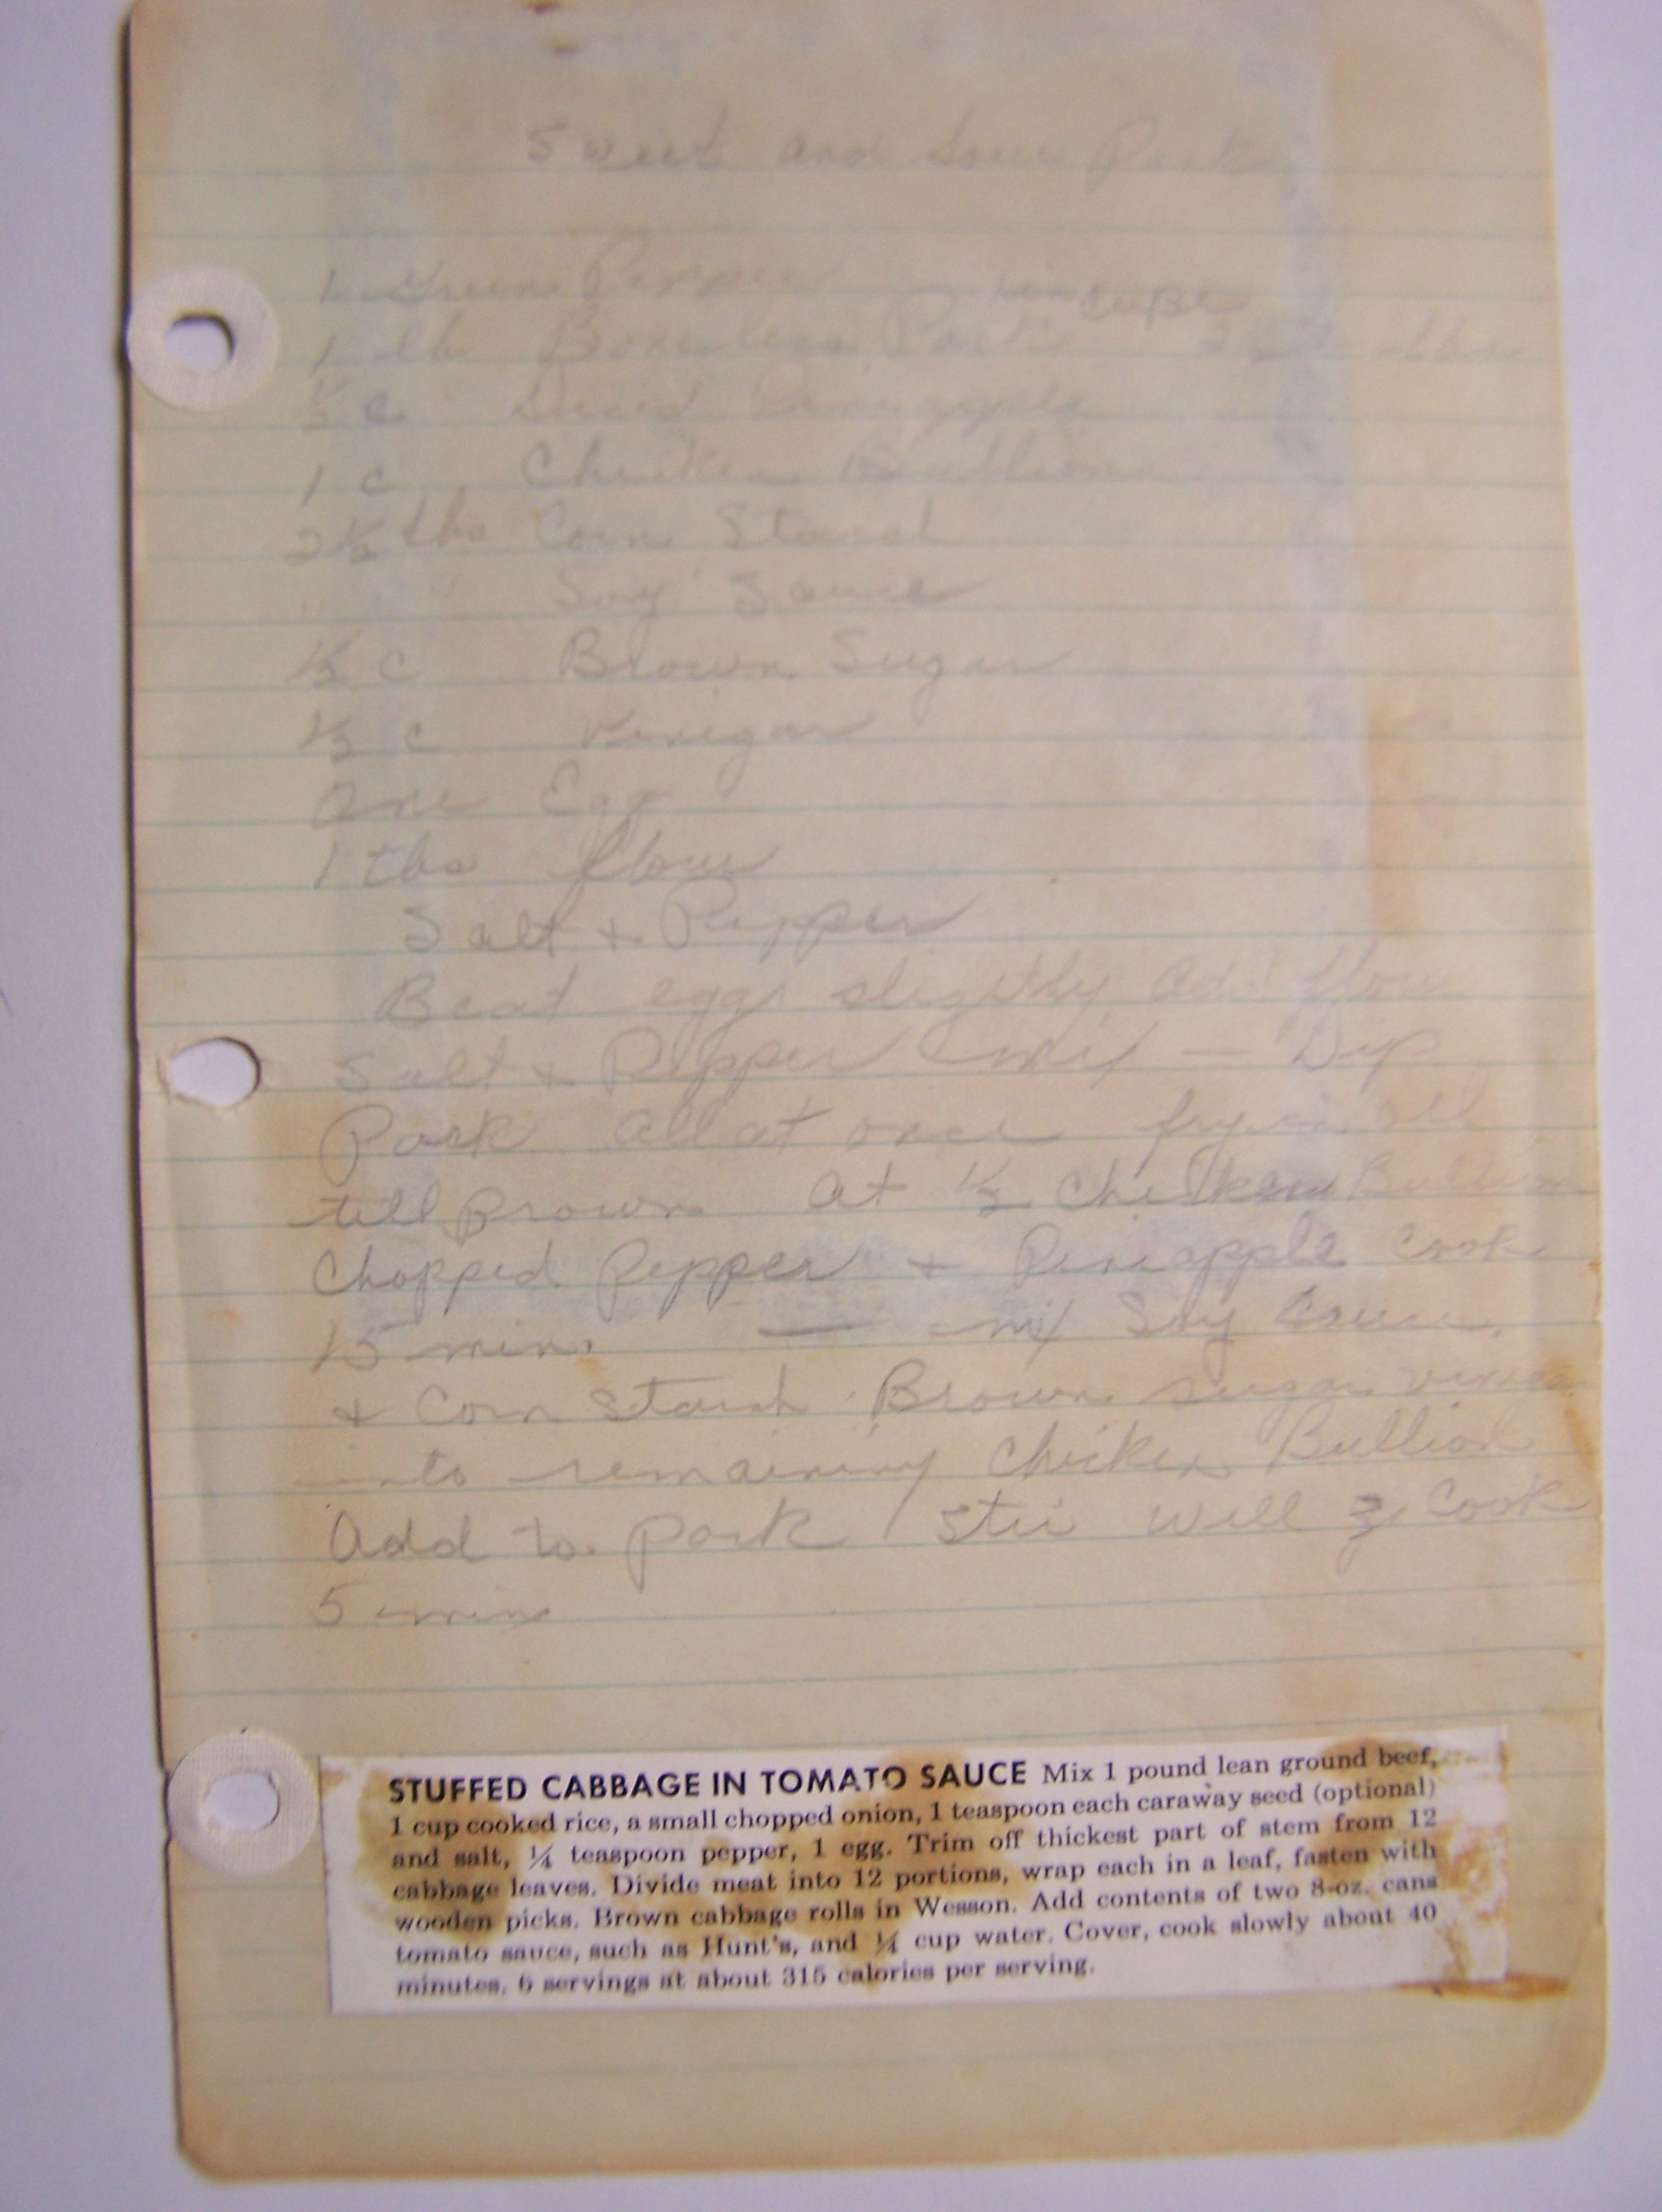 Sweet and Sour Pork
1 Green Pepper
in cube
1 lb Boneless Pork
½ c Diced Pineapple
1 c Chicken Bullion
2½ tbs Corn Starch
" " Soy Sauce
½ c Brown Sugar
½ c Vinegar
One Egg
1 tbs flour
Salt + Pepper
Beat eggs slightly add flour
Salt + Pepper mix — Dip
Pork all at once fry in oil
till Brown at ½ Chicken Bullion
Chopped Pepper + Pineapple Cook
15 min. — mix Soy Sauce
+ Corn Starch Brown sugar vineg
into remaining Chicken Bullion
Add to pork Stir well & Cook
5 min
STUFFED CABBAGE IN TOMATO SAUCE Mix 1 pound lean ground beef,
1 cup cooked rice, a small chopped onion, 1 teaspoon each caraway seed (optional)
and salt, ¼ teaspoon pepper, 1 egg. Trim off thickest part of stem from 12
cabbage leaves. Divide meat into 12 portions, wrap each in a leaf, fasten with
wooden picks. Brown cabbage rolls in Wesson. Add contents of two 8-oz. cans
tomato sauce, such as Hunt's, and ¼ cup water. Cover, cook slowly about 40
minutes. 6 servings at about 315 calories per serving.